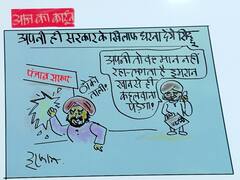 आज का कार्टून
अपनी ही सरकार के खिलाफ धरना देंगे सिद्धू
अपनी तो यह मान नहीं
रहा-लगता है इमरान
खान से ही
कहलवाना
पड़ेगा।
पंजाब सरकार
ठोको
ताली